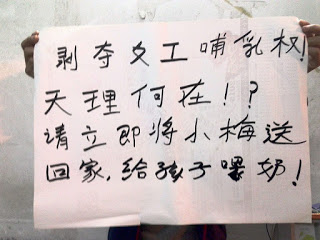 剥夺女工哺乳权!
天理何在!?
请立即将小梅送
回家,给孩子喂奶!